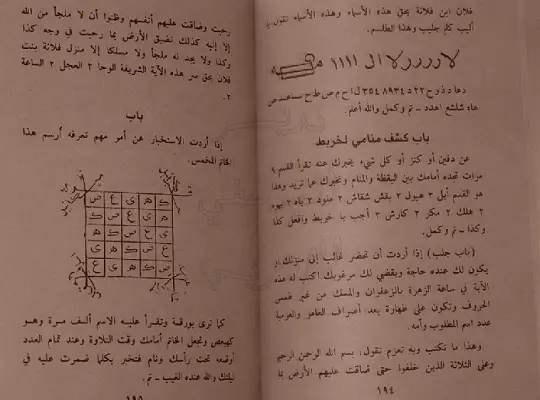 فلان ابن فلانة بحق هذه الأسماء وهذه الأسماء تقول يا
أليب كلم جليب وهذا الطلسم.
هاه شلشع اهدد ــ تم وكمل والله أعلم.
باب كشف منامي لخربط
عن دفين أو كنز أو كل شيء يخبرك عنه تقرأ القسم ٩
مرات تجده أمامك بين اليقظة والمنام وتخبرك عما تريد وهذا
هو القسم أيل ٣ هيول ٣ بقش شقاش ٢ منود ٢ ياه ٢ يهوه
٢ هلك ٢ مكر ٢ كارش ٣ أجب يا خربط وافعل كذا
وكذا ــ تم وكمل.
(باب جلب) إذا أردت أن تحضر غائب إلى منزلك أو
يكون لك عنده حاجة ويقضي لك مرغوبك اكتب له هذه
الآية في ساعة الزهرة بالزعفران والمسك من غير طمس
الحروف وتكون على طهارة بعد أنصراف العاهو والعزيمة
عدد اسم المطلوب وأمه.
وهذا ما تكتب وبه تعزم تقول: بسم الله الرحمن الرحيم
وعلى الثلاثة الذين خلفوا حتى ضاقت عليهم الأرض بما
١٩٤
رحبت وضاقت عليهم أنفسهم وظنوا أن لا ملجأ من الله
إلا إليه كذلك تضيق الأرض بما رحبت في وجه كذا
وكذا ولا يجد له ملجأ ولا مسلكا إلا منزل فلانة بنت
فلان بحق سر هذه الآية الشريفة الوحا ٢ العجل ٢ الساعة
٢.
باب
إذا أردت الاستخبار عن أمر مهم تعرفه أرسم هذا
الخاتم المخمس.
ك ه ي ع ص
ه ي ع ص ك
ي ع ص ك ه
ع ص ك ه ي
ص ك ه ي ع
كما ترى بورقة وتقرأ عليه الاسم ألف مرة وهو
كهيعص وتجعل الخاتم أمامك وقت التلاوة وعند تمام العدد
أوضعه تحت رأسك ونام فتخبر بكلما ضمرت عليه في
ليلتك والله عنده الغيب ــ تم.
١٩٥